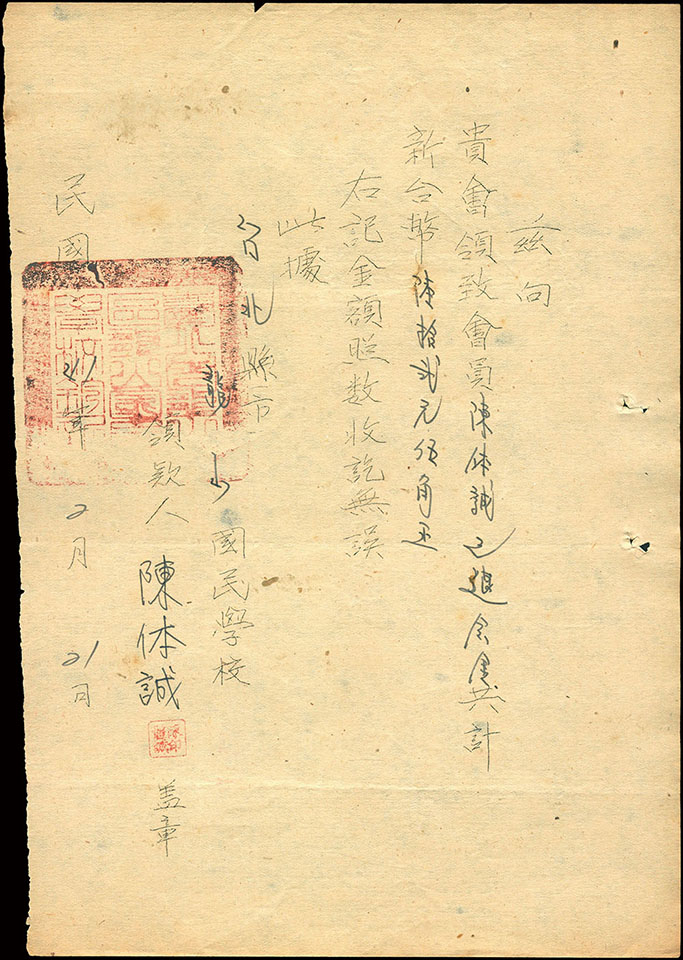 茲向
貴會領致會員陳体誠已退会金共計
新台幣陳拾弍元伍角正
右記金額照数收訖無误
此據
台北縣市
龍山國民學校
領款人陳体誠 盖章
民國41年2月21日